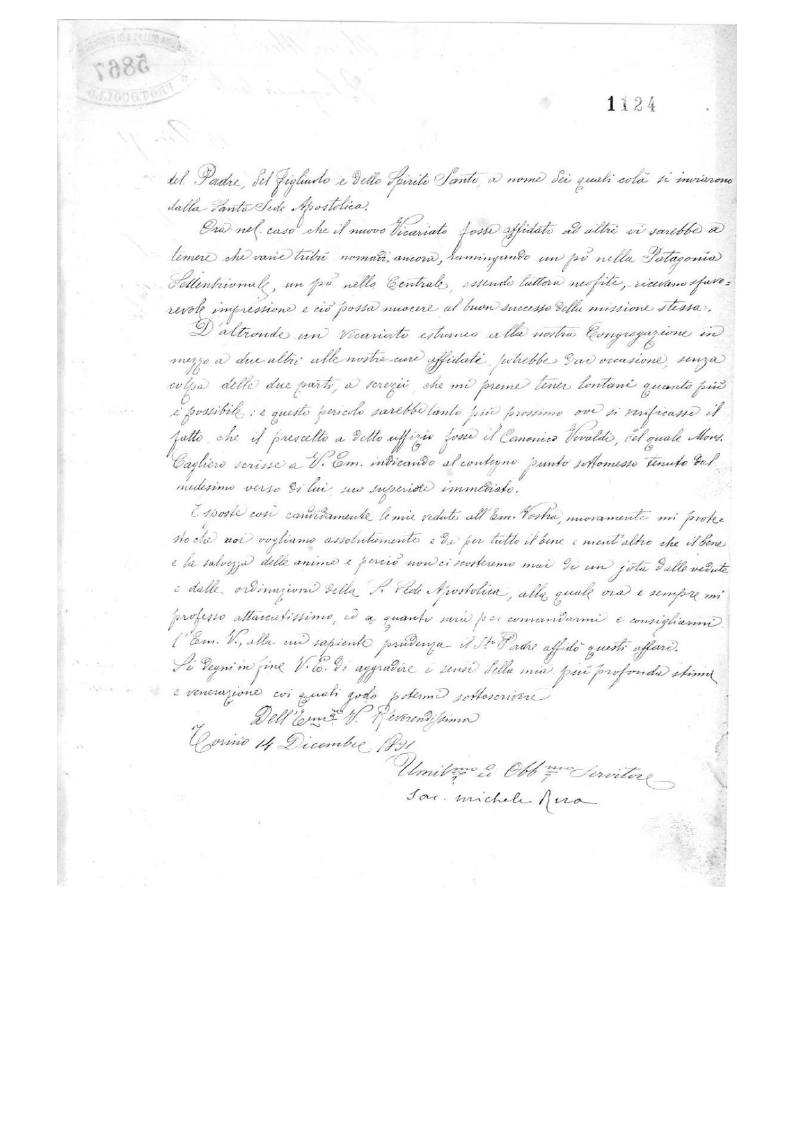 5867
PROTOCOLLO
1124
del Padre, del Figliuolo e dello Spirito Santo, a nome dei quali colà si inviarono
dalla Santa Sede Apostolica.
Ora nel caso che il nuovo Vicariato fosse affidato ad altri vi sarebbe a
temere che varie tribù nomadi ancora, ramingando un pò nella Patagonia
Settentrionale, un pò nella Centrale, essendo tuttora neofite, ricevano sfavo=
revole impressione e ciò possa nuocere al buon successo della missione stessa.
D'altronde un vicariato estraneo alla nostra Congregazione in
mezzo a due altri alle nostre cure affidati, potrebbe dar occasione, senza
colpa delle due parti, a screzii che mi preme tener lontani quanto più
è possibile; e questo pericolo sarebbe tanto più prossimo ove si verificasse il
fatto, che il prescelto a detto uffizio fosse il Canonico Vivaldi, del quale Mons.
Cagliero scrisse a V. Em. indicando al contegno punto sottomesso tenuto dal
medesimo verso di lui, suo superiore immediato.
Esposte così candidamente le mie vedute all'Em. Vostra, nuovamente mi prote-
sto che noi vogliamo assolutamente e da per tutto il bene e nient'altro che il bene
e la salvezza delle anime e perciò non ci scosteremo mai di un jota dalle vedute
e dalle ordinazioni della S. Sede Apostolica, alla quale ora e sempre mi
professo attaccatissimo, ed a quanto sarà per comandarmi e consigliarmi
l'Em. V., alla cui sapiente prudenza il Sto Padre affidò questi affari.
Si degni in fine V. E. di aggradire i sensi della mia più profonda stima
e venerazione coi quali godo potermi sottoscrivere
Dell'Emza V. Reverendissima
Torino 14 Dicembre 1891
Umilmo ed Obbmo Servitore
Sac. Michele Rua